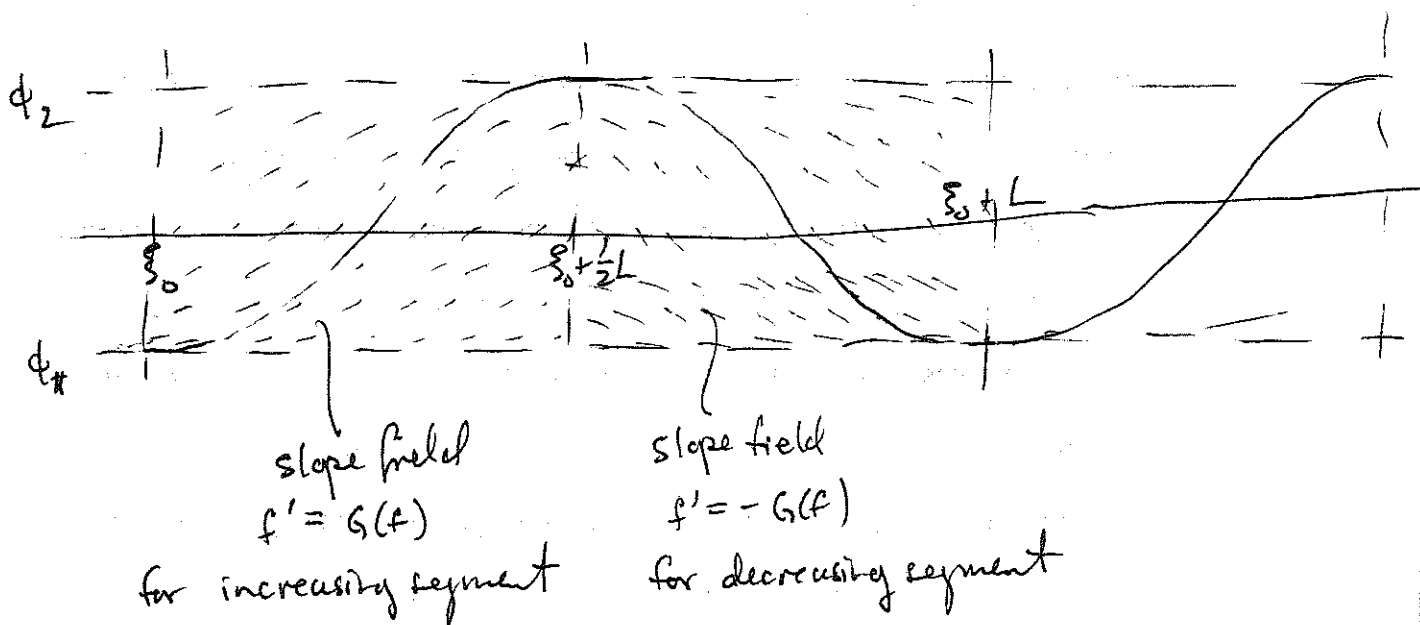 ϕ₂
ξ₀ + L
ξ₀
ξ₀ + ½L
ϕ
slope field
f' = G(f)
for increasing segment
slope field
f' = - G(f)
for decreasing segment